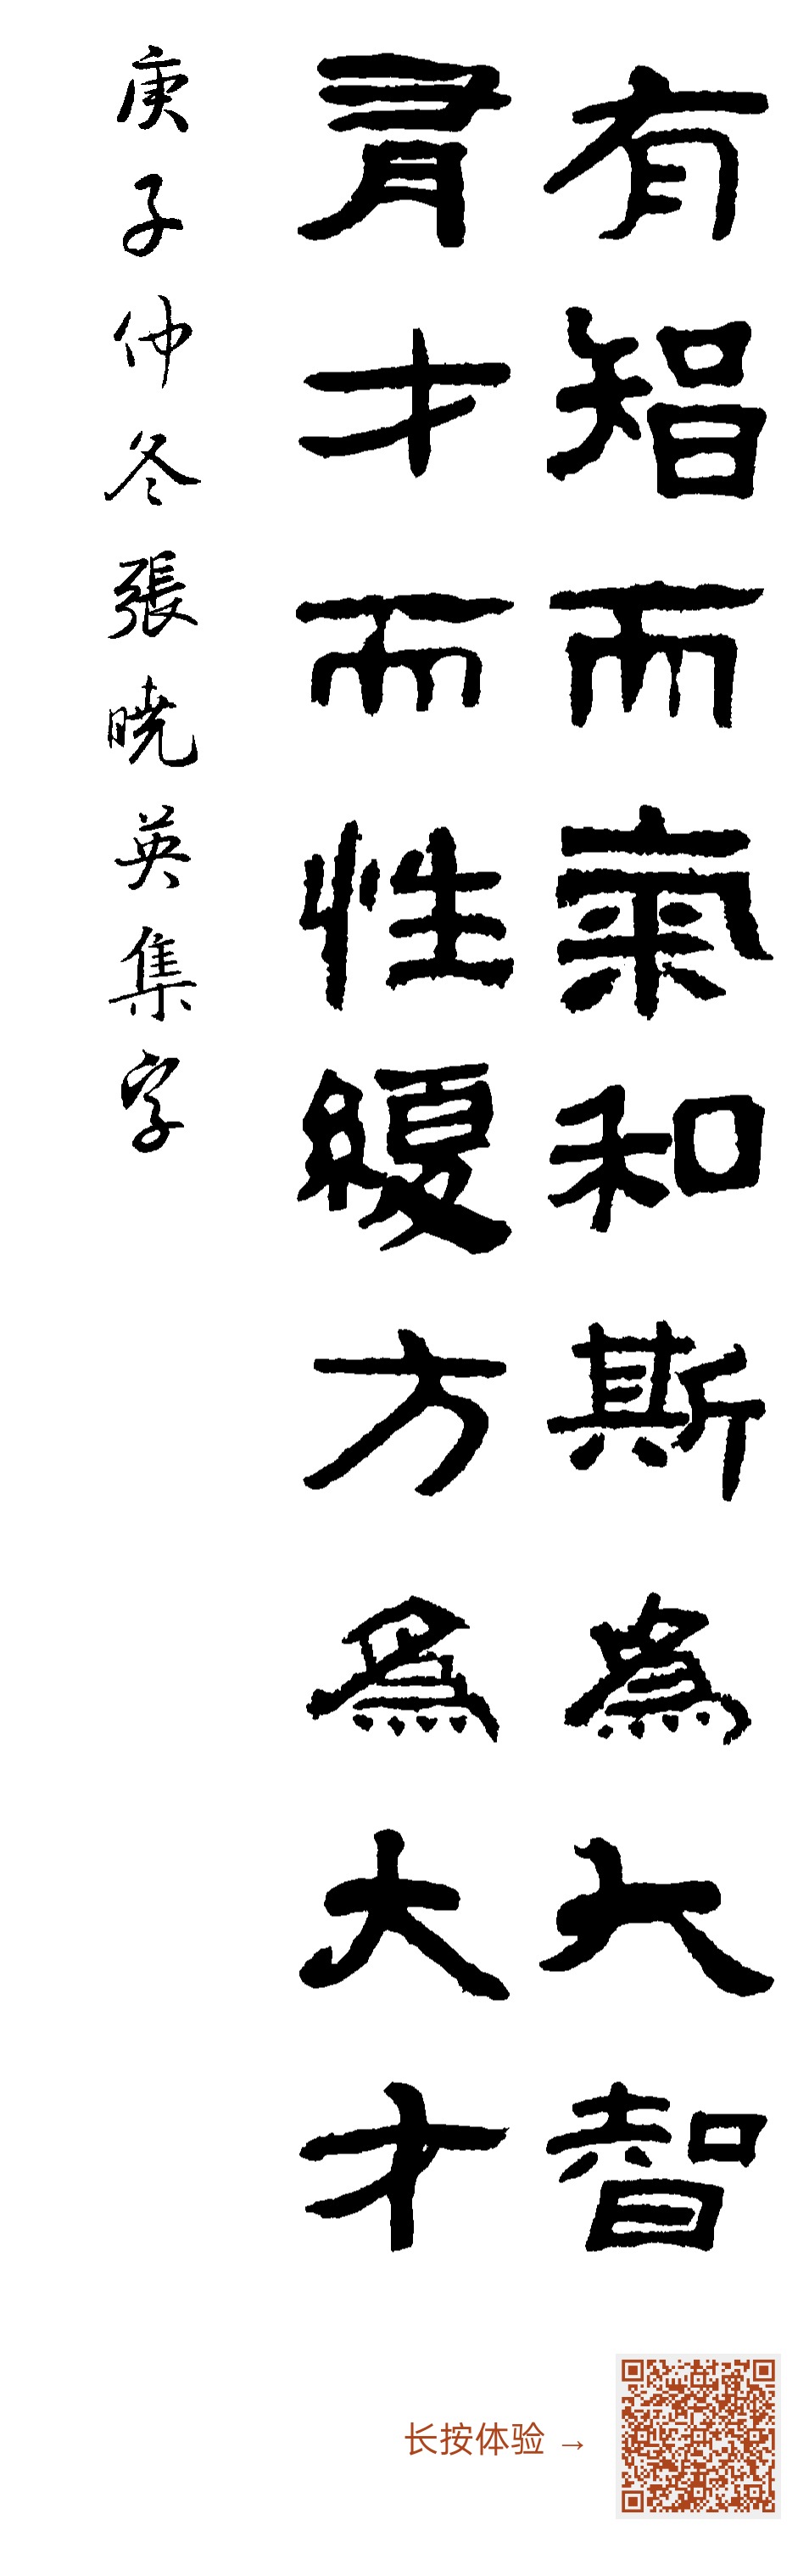 有智而氣和斯為大智
有才而性緩方為大才
庚子仲冬張曉英集字
长按体验 →